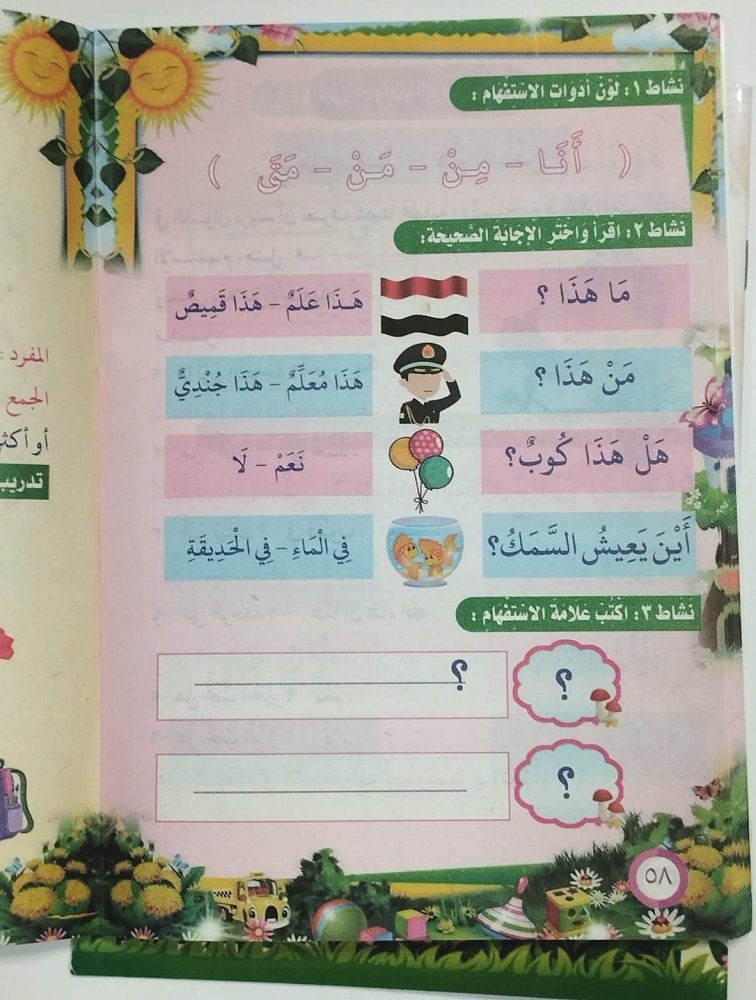 نشاط ١ : لَوِّنْ أدوات الاستفهام :
( أَنَا - مِنْ - مَنْ - مَتَى )
نشاط ٢ : اقرأ واختر الإجابة الصحيحة:
مَا هَذَا ؟
هَـذَا عَلَمٌ - هَذَا قَمِيصٌ
مَنْ هَذَا ؟
هَذَا مُعَلِّمٌ - هَذَا جُنْدِيٌّ
هَلْ هَذَا كُوبٌ؟
نَعَمْ - لَا
أَيْنَ يَعِيشُ السَّمَكُ؟
فِي الْمَاءِ - فِي الْحَدِيقَةِ
نشاط ٣ : اكتب علامة الاستفهام :
؟
؟
؟
٥٨
المفرد :
الجمع
أو أكثر
تدريب